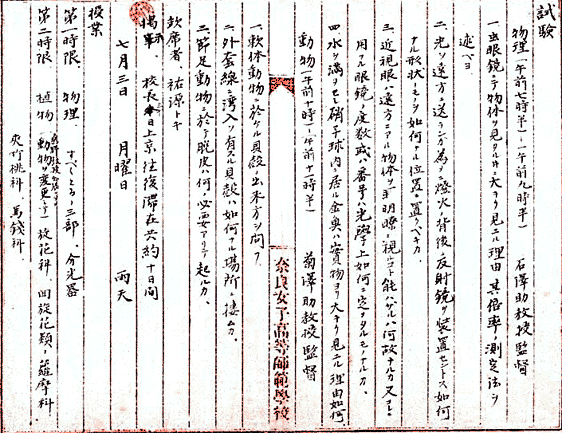 試験
物理(午前七時半)―(午前九時半) 石澤助教授監督
一、虫眼鏡ニテ物体ヲ見タルキニ大キク見ユル理由 其倍率ノ測定法ヲ
述ベヨ
二、光ヲ遠方ニ送ラン方為メニ燈火ノ背後ニ反射鏡ヲ装置セントス如何
ナル形状ノモノヲ如何ナル位置ニ置クベキカ
三、近視眼ハ遠方ニアル物体ヲ明瞭ニ視ルコト能ハザルハ何故ナルカ又之ニ
用フル眼鏡ノ度数或ハ番号ハ光学上如何ニ定メタルモノナルカ
四、水ヲ満タセル硝子球内ニ居ル金魚ハ実物ヨリ大キク見ユル理由如何
動物(午前十時)―(午前十一時半) 菊澤助教授監督
一、軟体動物ニ於ケル貝殻ノ出来方ヲ問フ
二、外套線ニ湾入ヲ有スル貝殻ハ如何ナル場所ニ棲ムカ
三、節足動物ニ於テ脱皮ハ何ノ必要アリテ起ルカ
欠席者 祐源トキ
掲示 校長本日上京往復滞在共約十日間
七月三日 月曜日 雨天
授業
第一時限 物理 すぺくとる 三部 分光器
第二時限 植物 (動物ヲ変更シテ) 旋花科 回旋花類 薩摩科
夾竹桃科 馬錢科
奈良女子高等師範學校